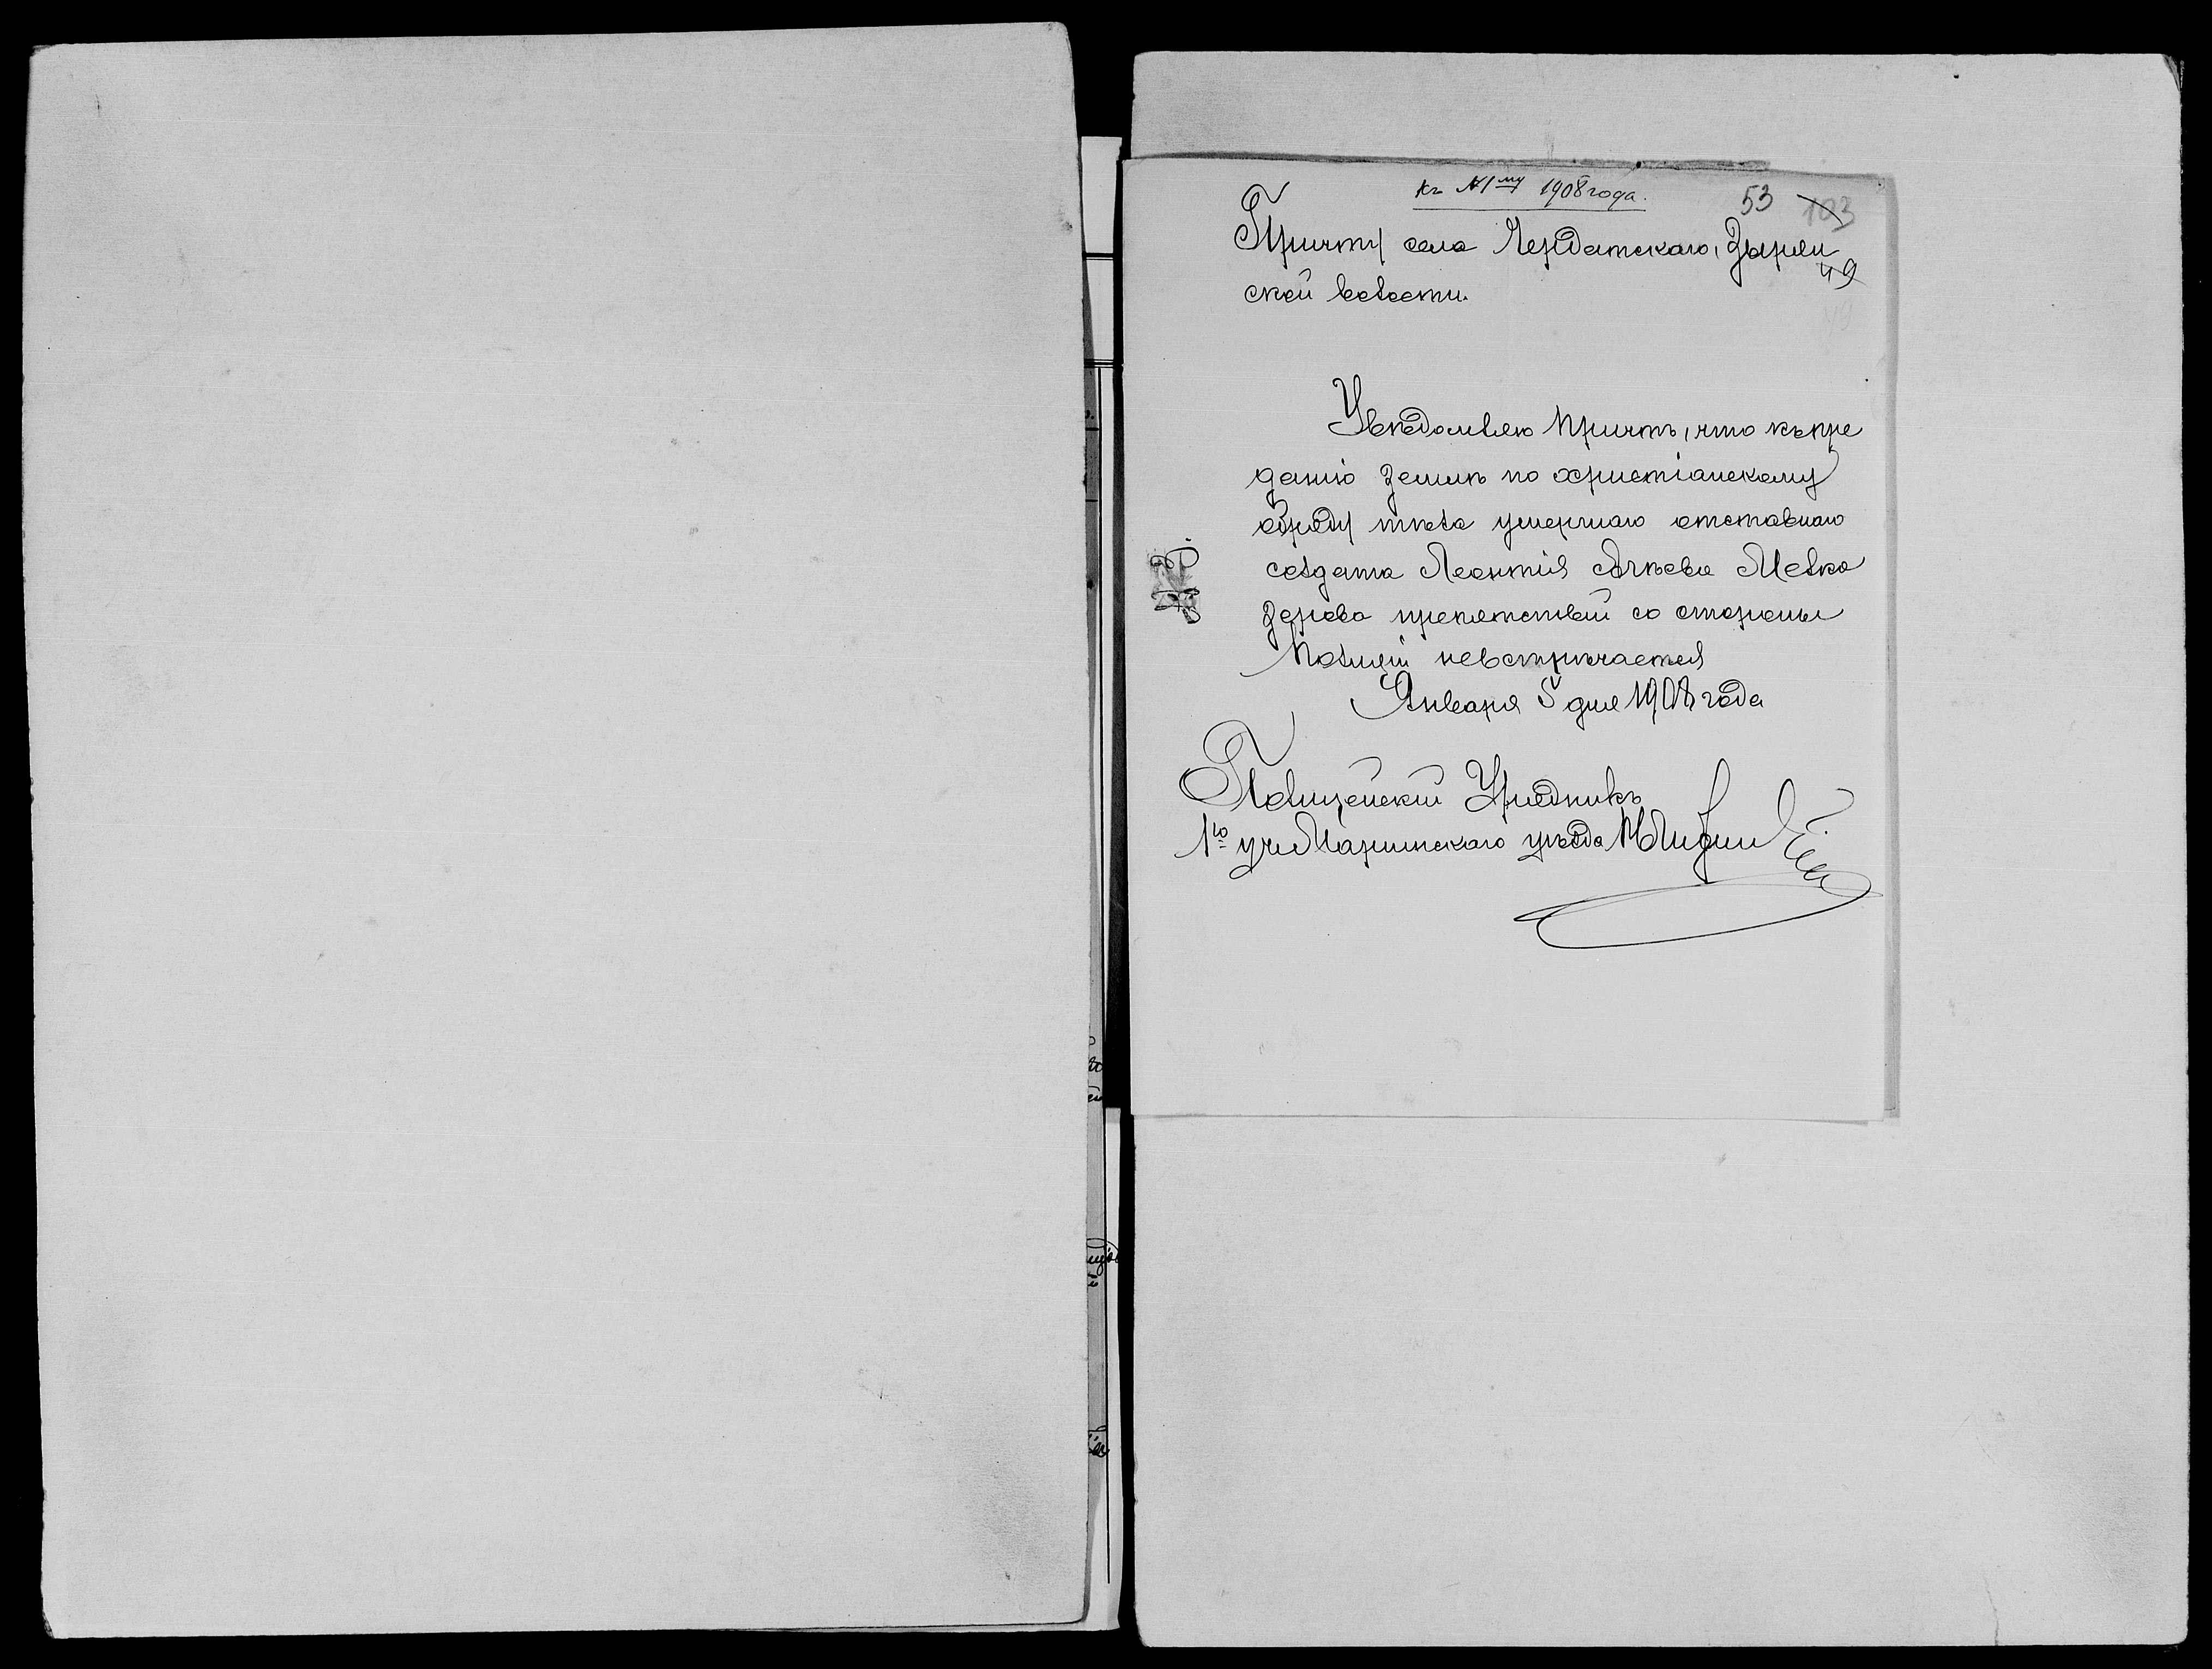 Къ №1му 1908 года.
53 103
Причту села Чердатскаго, Зырян
49
ской волости.
Увѣдомляю Причтъ, что къ пре
данію землѣ по христіанскому
обряду тѣла умершаго отставнаго
солдата Леонтія Мелко
зерова препятствій со стороны
Полиціи невстрѣчается
Января 5 дня 1908 года
Полицейскій Урядникъ
1го уч Маріинскаго уѣзда